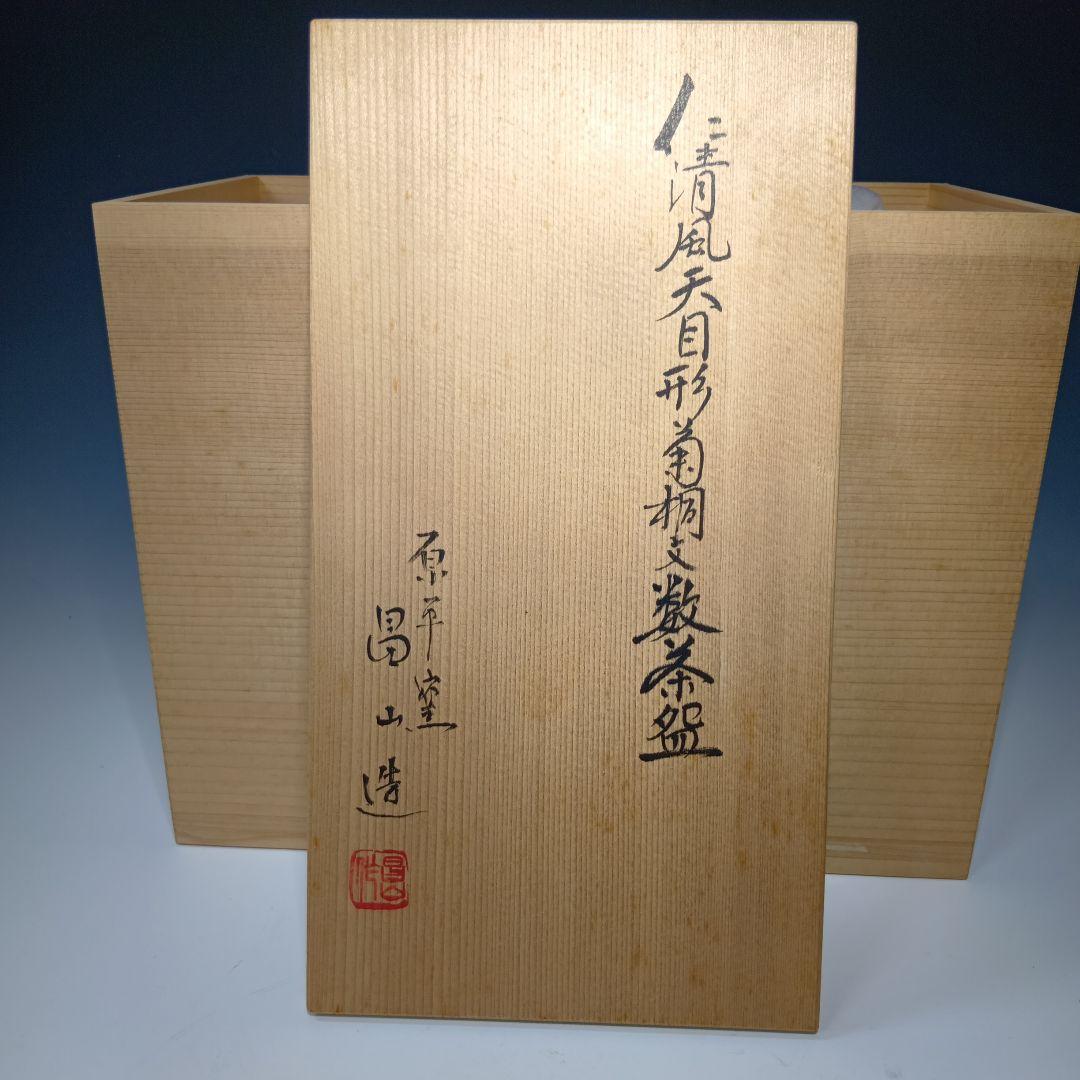 仁清風天目形菊桐文数茶盌
原平窯
昌山造